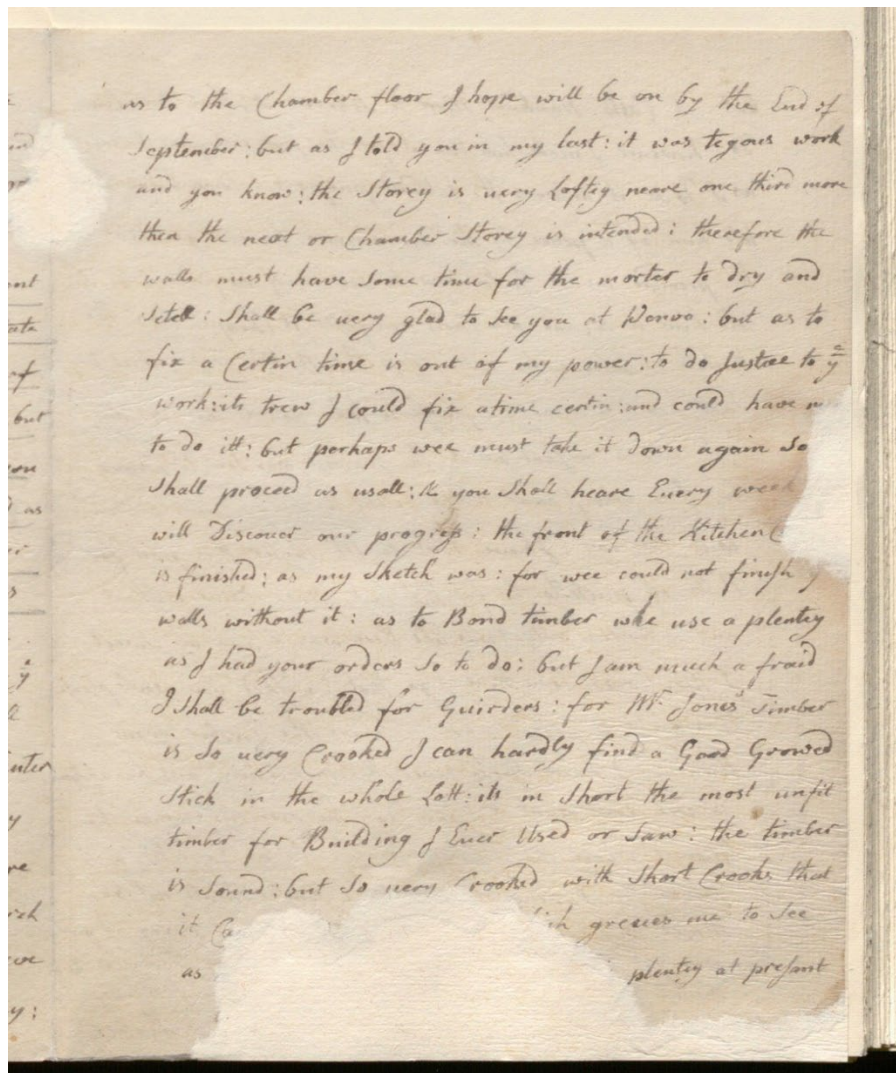 as to the Chamber floor I hope will be on by the End of
September: but as I told you in my last: it was tegous work
and you know: the Storey is very Loftey neare one third more
then the next or Chamber Storey is intended: therefore the
walls must have some time for the morter to dry and
setell: Shall be very glad to see you at Wenvo: but as to
fix a Certin time is out of my power: to do Justice to ye
work: its trew I could fix a time certin: and could have
to do itt: but perhaps wee must take it down again So
Shall proceed as usall: & you Shall heare Every week
will Discover our progress: the front of the Kitchen
is finished: as my Sketch was: for wee could not finish
walls without it: as to Bond timber whe use a plentey
as I had your orders so to do: but I am much a fraid
I Shall be troubled for Guirders: for Mr. Jones's Timber
is So very Crooked I can hardly find a Good Growed
Stick in the whole Lott: its in Short the most unfit
timber for Building I Ever Used or Saw: the timber
is Sound: but So very Crooked with Short Crooks that
it greeves me to See
as plentey at present